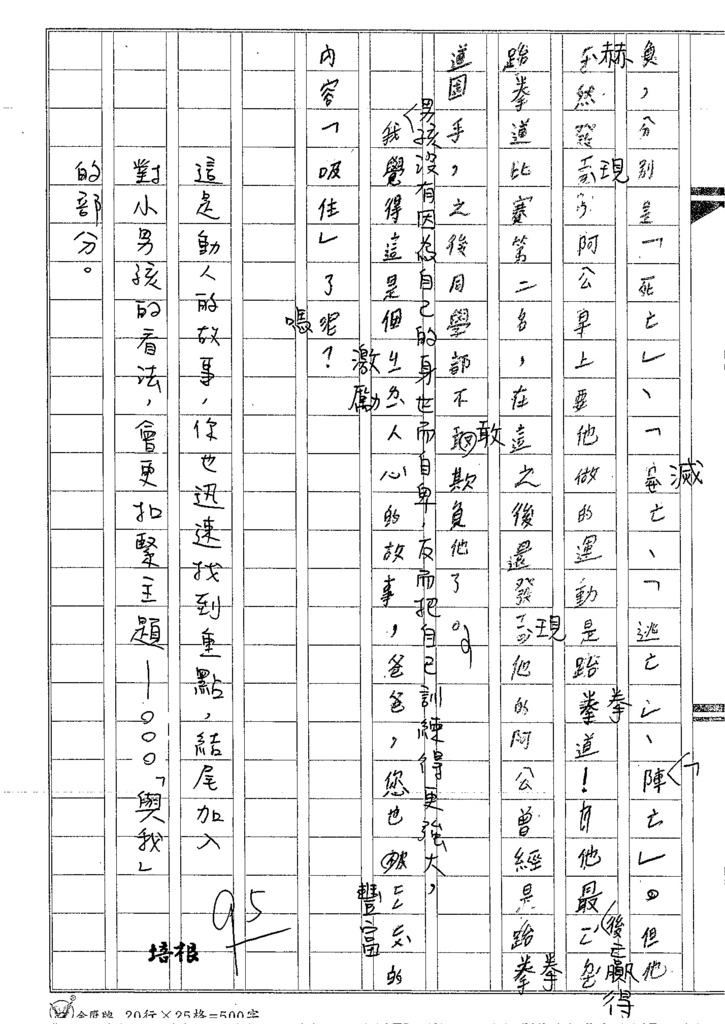 負，分別是「死亡」、「滅亡」、「逃亡」、「陣亡」。但他
赫然發現阿公早上要他做的運動是跆拳道！他最後贏得
跆拳道比賽第二名，在這之後還發現他的阿公曾經是跆拳
道國手，之後同學都不敢欺負他了。
男孩沒有因為自己的身世而自卑，反而把自己訓練得更強大，
我覺得這是個激勵人心的故事，爸爸，您也被豐富的
內容「吸住」了嗎？
這是動人的故事，你也迅速找到重點，結尾加入
對小男孩的看法，會更扣緊主題—○○○「與我」
的部分。
95
培根
20行×25格=500字